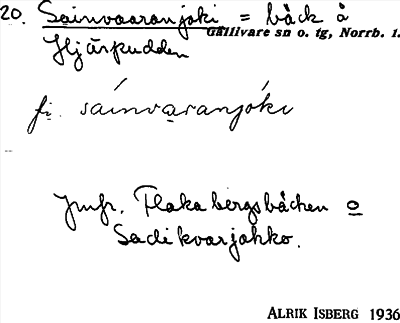 20. Sainvaaranjoki = bäck å
Gällivare sn o. tg, Norrb. l.
Hjärpudden
fi. sáinvaranjóki
Jmfr. Flakabergsbäcken o
Sadikvarjohko.
ALRIK ISBERG 1936